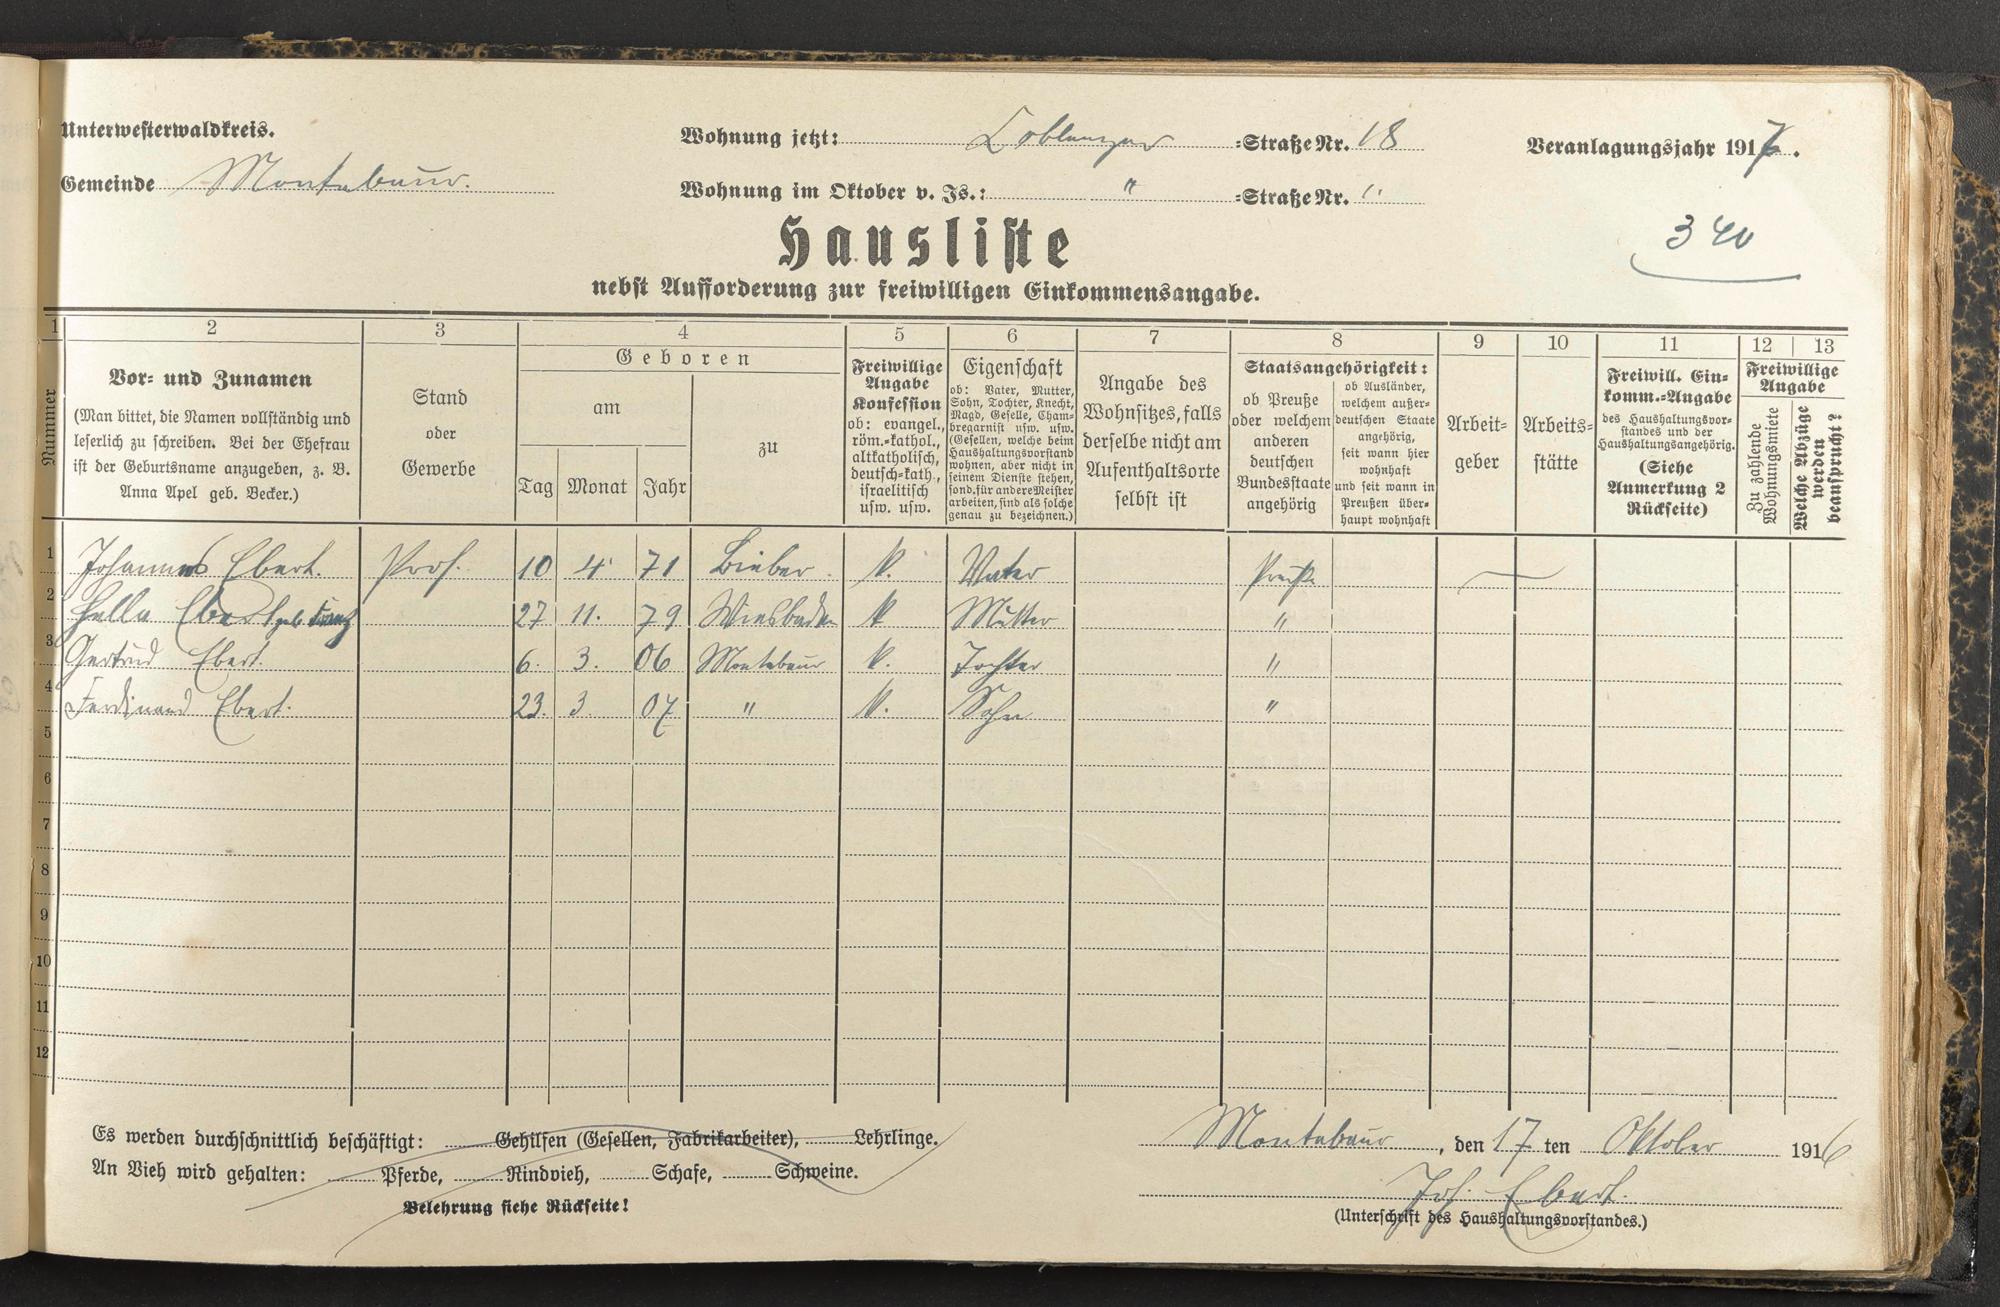 Unterwesterwaldkreis.
Wohnung jetzt: Coblenzer =Straße Nr. 18
Veranlagungsjahr 1917.
Gemeinde Montabaur.
Wohnung im Oktober v. Js.: " =Straße Nr. "
340
Hausliste
nebst Aufforderung zur freiwilligen Einkommensangabe.
1 2 3 4 5 6 7 8 9 10 11 12 13
Nummer
Vor- und Zunamen
(Man bittet, die Namen vollständig und
leserlich zu schreiben. Bei der Ehefrau
ist der Geburtsname anzugeben, z. B.
Anna Apel geb. Becker.)
Stand
oder
Gewerbe
Geboren
am
Tag Monat Jahr
zu
Freiwillige
Angabe
Konfession
ob: evangel.,
röm.-kathol.,
altkatholisch,
deutsch-kath.,
israelitisch
usw. usw.
Eigenschaft
ob: Vater, Mutter,
Sohn, Tochter, Knecht,
Magd, Geselle, Cham-
bregarnist usw. usw.
(Gesellen, welche beim
Haushaltungsvorstand
wohnen, aber nicht in
seinem Dienste stehen,
sond. für andere Meister
arbeiten, sind als solche
genau zu bezeichnen.)
Angabe des
Wohnsitzes, falls
derselbe nicht am
Aufenthaltsorte
selbst ist
Staatsangehörigkeit:
ob Preuße
oder welchem
anderen
deutschen
Bundesstaate
angehörig
ob Ausländer,
welchem außer-
deutschen Staate
angehörig,
seit wann hier
wohnhaft
und seit wann in
Preußen über-
haupt wohnhaft
Arbeit-
geber
Arbeits-
stätte
Freiwill. Ein-
komm.-Angabe
des Haushaltungsvor-
standes und der
Haushaltungsangehörig.
(Siehe
Anmerkung 2
Rückseite)
Freiwillige
Angabe
Zu zahlende
Wohnungsmiete
Welche Abzüge
werden
beansprucht?
1 Johannes Ebert. Prof. 10 4 71 Bieber. k. Vater Preuße
2 Hella Ebert geb. 27 11. 79 Wiesbaden k Mutter "
3 Gertrud Ebert. 6. 3. 06 Montabaur k. Tochter "
4 Ferdinand Ebert. 23. 3. 07 " k. Sohn "
5
6
7
8
9
10
11
12
Es werden durchschnittlich beschäftigt: Gehilfen (Gesellen, Fabrikarbeiter), Lehrlinge.
An Vieh wird gehalten: Pferde, Rindvieh, Schafe, Schweine.
Belehrung siehe Rückseite!
Montabaur, den 17ten Oktober 1916
Joh. Ebert.
(Unterschrift des Haushaltungsvorstandes.)